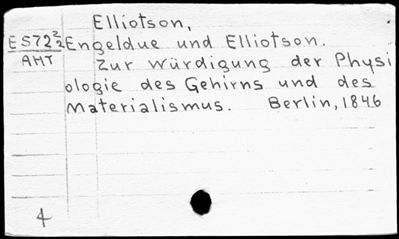 Elliotson,
E5722/2 Engeldue und Elliotson.
AMT Zur Würdigung der Physi
ologie des Gehirns und des
Materialismus. Berlin, 1846
4